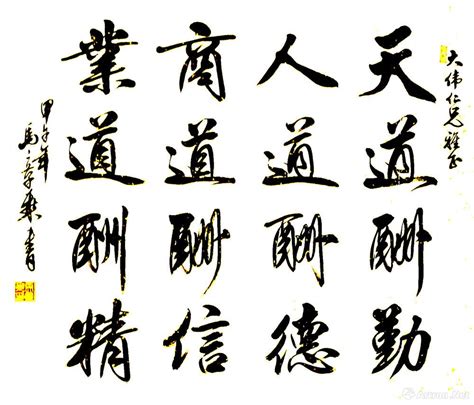 大伟仁兄雅正
天道酬勤
人道酬德
商道酬信
業道酬精
甲午年
馬章乘书